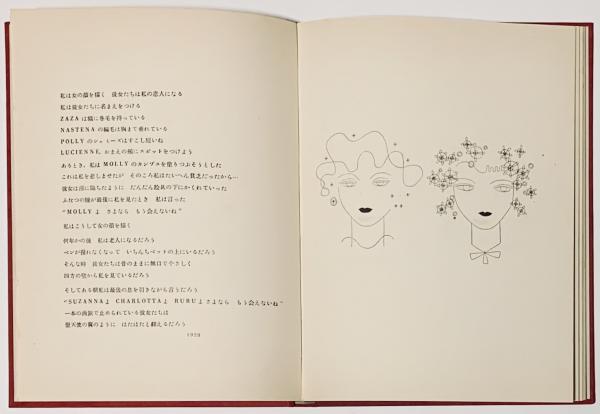 私は女の顔を描く 彼女たちは私の恋人になる
私は彼女たちに名まえをつける
ZAZA は額に巻毛を持っている
NASTENA の編毛は胸まで垂れている
POLLY のシュミーズはすこし短いね
LUCIENNE, おまえの頬にスポットをつけよう
あるとき、私は MOLLY のカンヴスを塗りつぶそうとした
これは私を悲しませたが そのころ私はたいへん貧乏だったから…
彼女は沼に陥ちたように だんだん絵具の下にかくれていった
ふたつの瞳が最後に私を見たとき 私は言った
“MOLLY よ さよなら もう会えないね”
私はこうして女の顔を描く
何年かの後 私は老人になるだろう
ペンが握れなくなって いちんちベットの上にいるだろう
そんな時 彼女たちは昔のままに無口でやさしく
四方の壁から私を見ているだろう
そしてある朝私は最後の息を引きながら言うだろう
“SUZANNA よ CHARLOTTA よ RURU よ さよなら もう会えないね”
一本の画鋲で止められている彼女たちは
聖天使の翼のように はたはたと翻えるだろう
1928